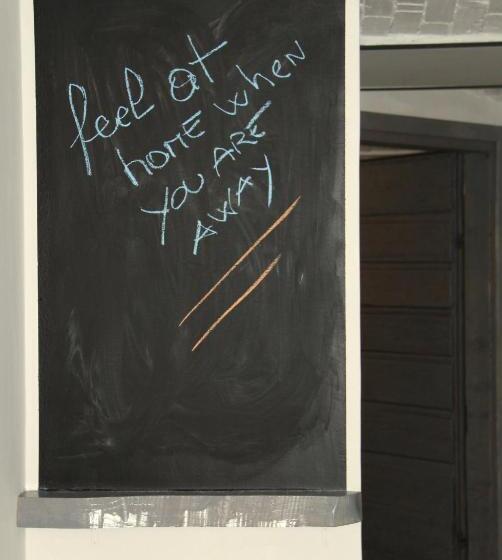 feel at
home when
you ARE
AWAY